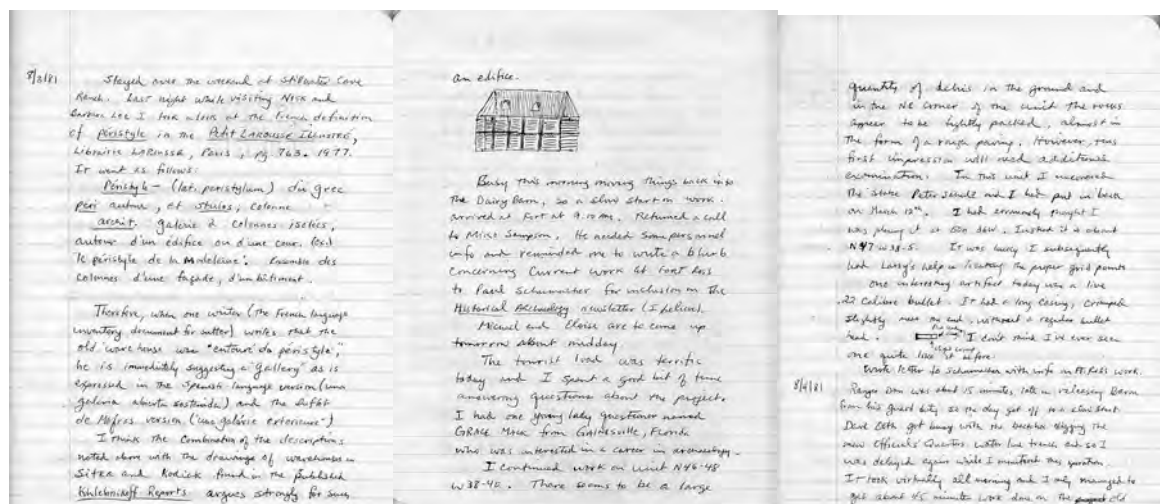 8/3/81
Stayed over the weekend at Stillwater Cove
Ranch. Last night while visiting Nick and
Barbara Lee I took a look at the French definition
of péristyle in the Petit LAROUSSE ILLUSTRÉ,
Librairie LAROUSSE, Paris, pg. 763. 1977.
It went as follows:
Péristyle - (lat. peristylum) du grec
peri autour, et stulos, colonne
archit. galerie à colonnes isolées,
autour d'un édifice ou d'une cour. (ex.)
le péristyle de la Madeleine. Ensemble des
colonnes d'une façade, d'un bâtiment.
Therefore, when one writer (the French language
inventory document for Sutter) writes that the
old warehouse was "entouré de péristyle",
he is immediately suggesting a "gallery" as is
expressed in the Spanish language version (una
galeria abierta sostenida) and the Duflot
de Mofras version ("une galérie exterieure")
I think the combination of the descriptions
noted above with the drawings of warehouses in
Sitka and Kodiak found in the published
Khlebnikoff Reports argues strongly for such
an edifice.
Busy this morning moving things back into
the Dairy Barn, so a slow start on work.
arrived at Fort at 9:10 AM. Returned a call
to Mike Sampson. He needed some personnel
info and reminded me to write a blurb
concerning current work at Fort Ross
to Paul Schumacher for inclusion in the
Historical Archeology newsletter (I believe).
Michael and Eloise are to come up
tomorrow about midday.
The tourist load was terrific
today and I spent a good bit of time
answering questions about the project.
I had one young lady questioner named
GRACE Mack from GAINESVILLE, Florida
who was interested in a career in archaeology.
I continued work on unit N46-48
W38-40. There seems to be a large
quantity of debris in the ground and
in the NE corner of the unit the rocks
appear to be tightly packed, almost in
the form of a rough paving. However, this
first impression will need additional
examination. In this unit I uncovered
the stake Peter Schulz and I had put in back
on March 12th. I had erroneously thought I
was placing it at. Instead it is about
N47 W38.5. It was lucky I subsequently
had Larry's help in locating the proper grid points
One interesting artifact today was a live
.22 calibre bullet. It had a long casing, crimped
slightly near one end, without a regular bullet
head. I don't think I've ever seen
one quite like it before.
Wrote letter to Schumacher with info on Ft. Ross work.
8/4/81
Ranger Dan was about 15 minutes late in releasing Barn
from his guard duty so the day got off to a slow start.
Dave got busy with the backhoe digging the
new Officials' Quarters water line trench and so I
was delayed again while I monitored this operation.
It took virtually all morning and I only managed to
get about 45 minutes work done on the old